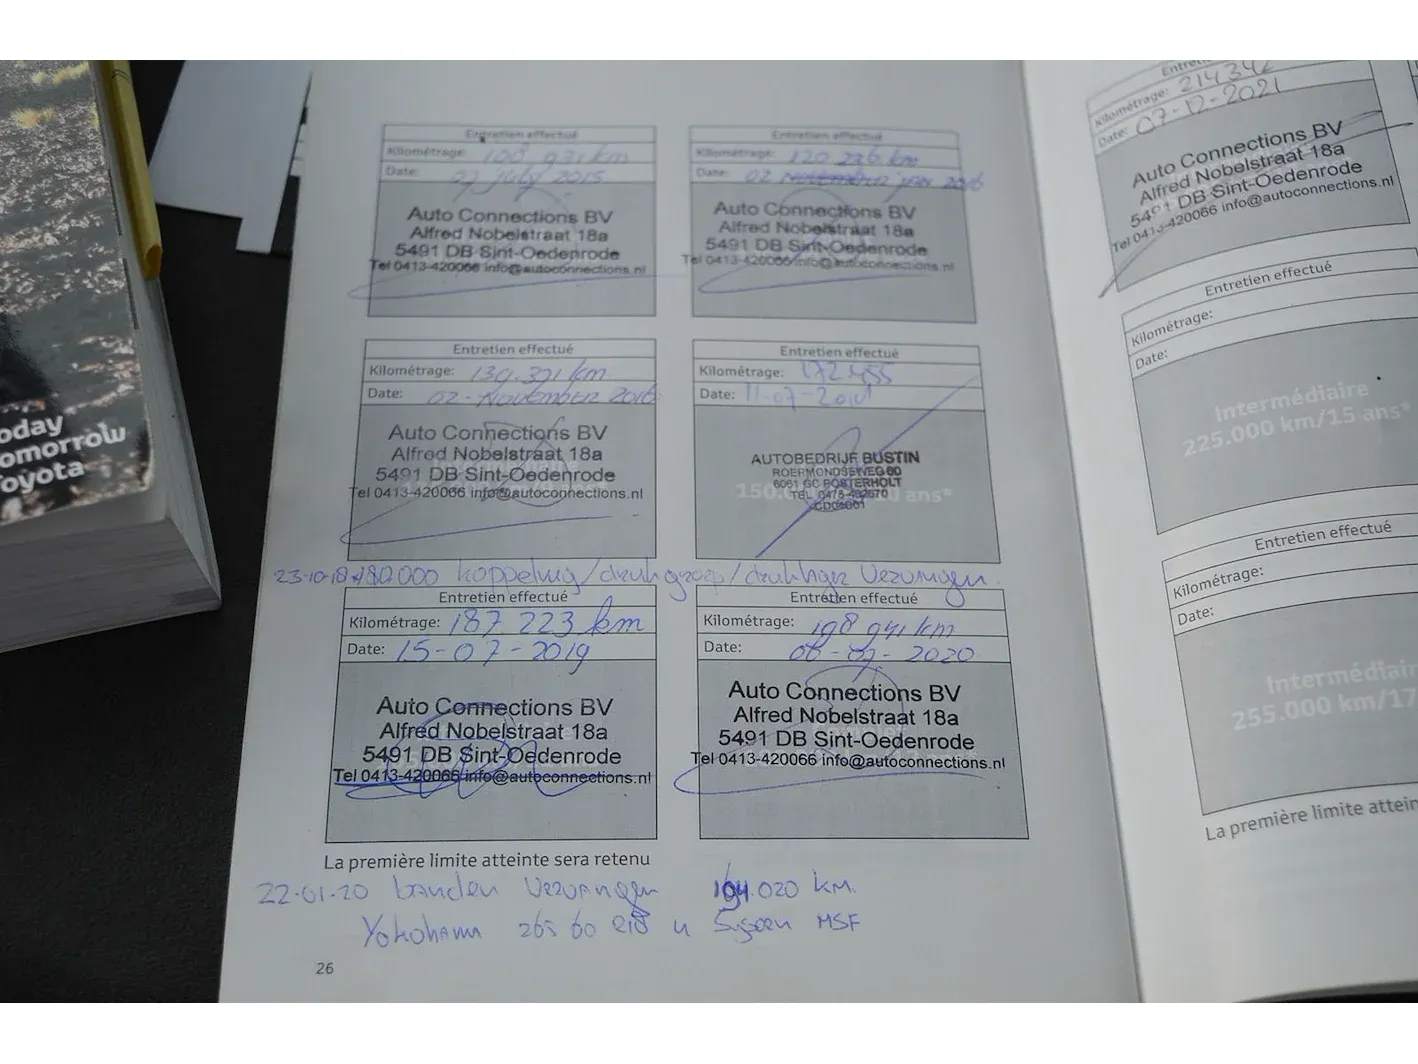 oday
omorrow
oyota
Entretien effectué
Kilométrage: 108 931 km
Date: 07 July 2015
Auto Connections BV
Alfred Nobelstraat 18a
5491 DB Sint-Oedenrode
Tel 0413-420066 info@autoconnections.nl
Entretien effectué
Kilométrage: 120 236 km
Date: 02 2016
Auto Connections BV
Alfred Nobelstraat 18a
5491 DB Sint-Oedenrode
Tel 0413-420066 info@autoconnections.nl
Entretien effectué
Kilométrage: 139.391 km
Date: 02-November 2016
Auto Connections BV
Alfred Nobelstraat 18a
5491 DB Sint-Oedenrode
Tel 0413-420066 info@autoconnections.nl
Entretien effectué
Kilométrage: 172.455
Date: 11-07-
AUTOBEDRIJF BUSTIN
ROERMONDSEWEG 60
6061 GC POSTERHOLT
TEL. 0475-
150.0 ans*
23-10-18 180.000 koppeling/drukgroep/druklager vervangen.
Entretien effectué
Kilométrage: 187 223 km
Date: 15-07-2019
Auto Connections BV
Alfred Nobelstraat 18a
5491 DB Sint-Oedenrode
Tel 0413-420066 info@autoconnections.nl
Entretien effectué
Kilométrage: 198 941 km
Date: 2020
Auto Connections BV
Alfred Nobelstraat 18a
5491 DB Sint-Oedenrode
Tel 0413-420066 info@autoconnections.nl
La première limite atteinte sera retenu
22-01-20 banden vervangen 194.020 km.
Yokohama 265 60 R18 MSF
26
Entretien
Kilométrage: 214 342
Date: 07-12-2021
Auto Connections BV
Alfred Nobelstraat 18a
5491 DB Sint-Oedenrode
Tel 0413-420066 info@autoconnections.nl
Entretien effectué
Kilométrage:
Date:
Intermédiaire
225.000 km/15 ans*
Entretien effectué
Kilométrage:
Date:
Intermédiair
255.000 km/17
La première limite attein